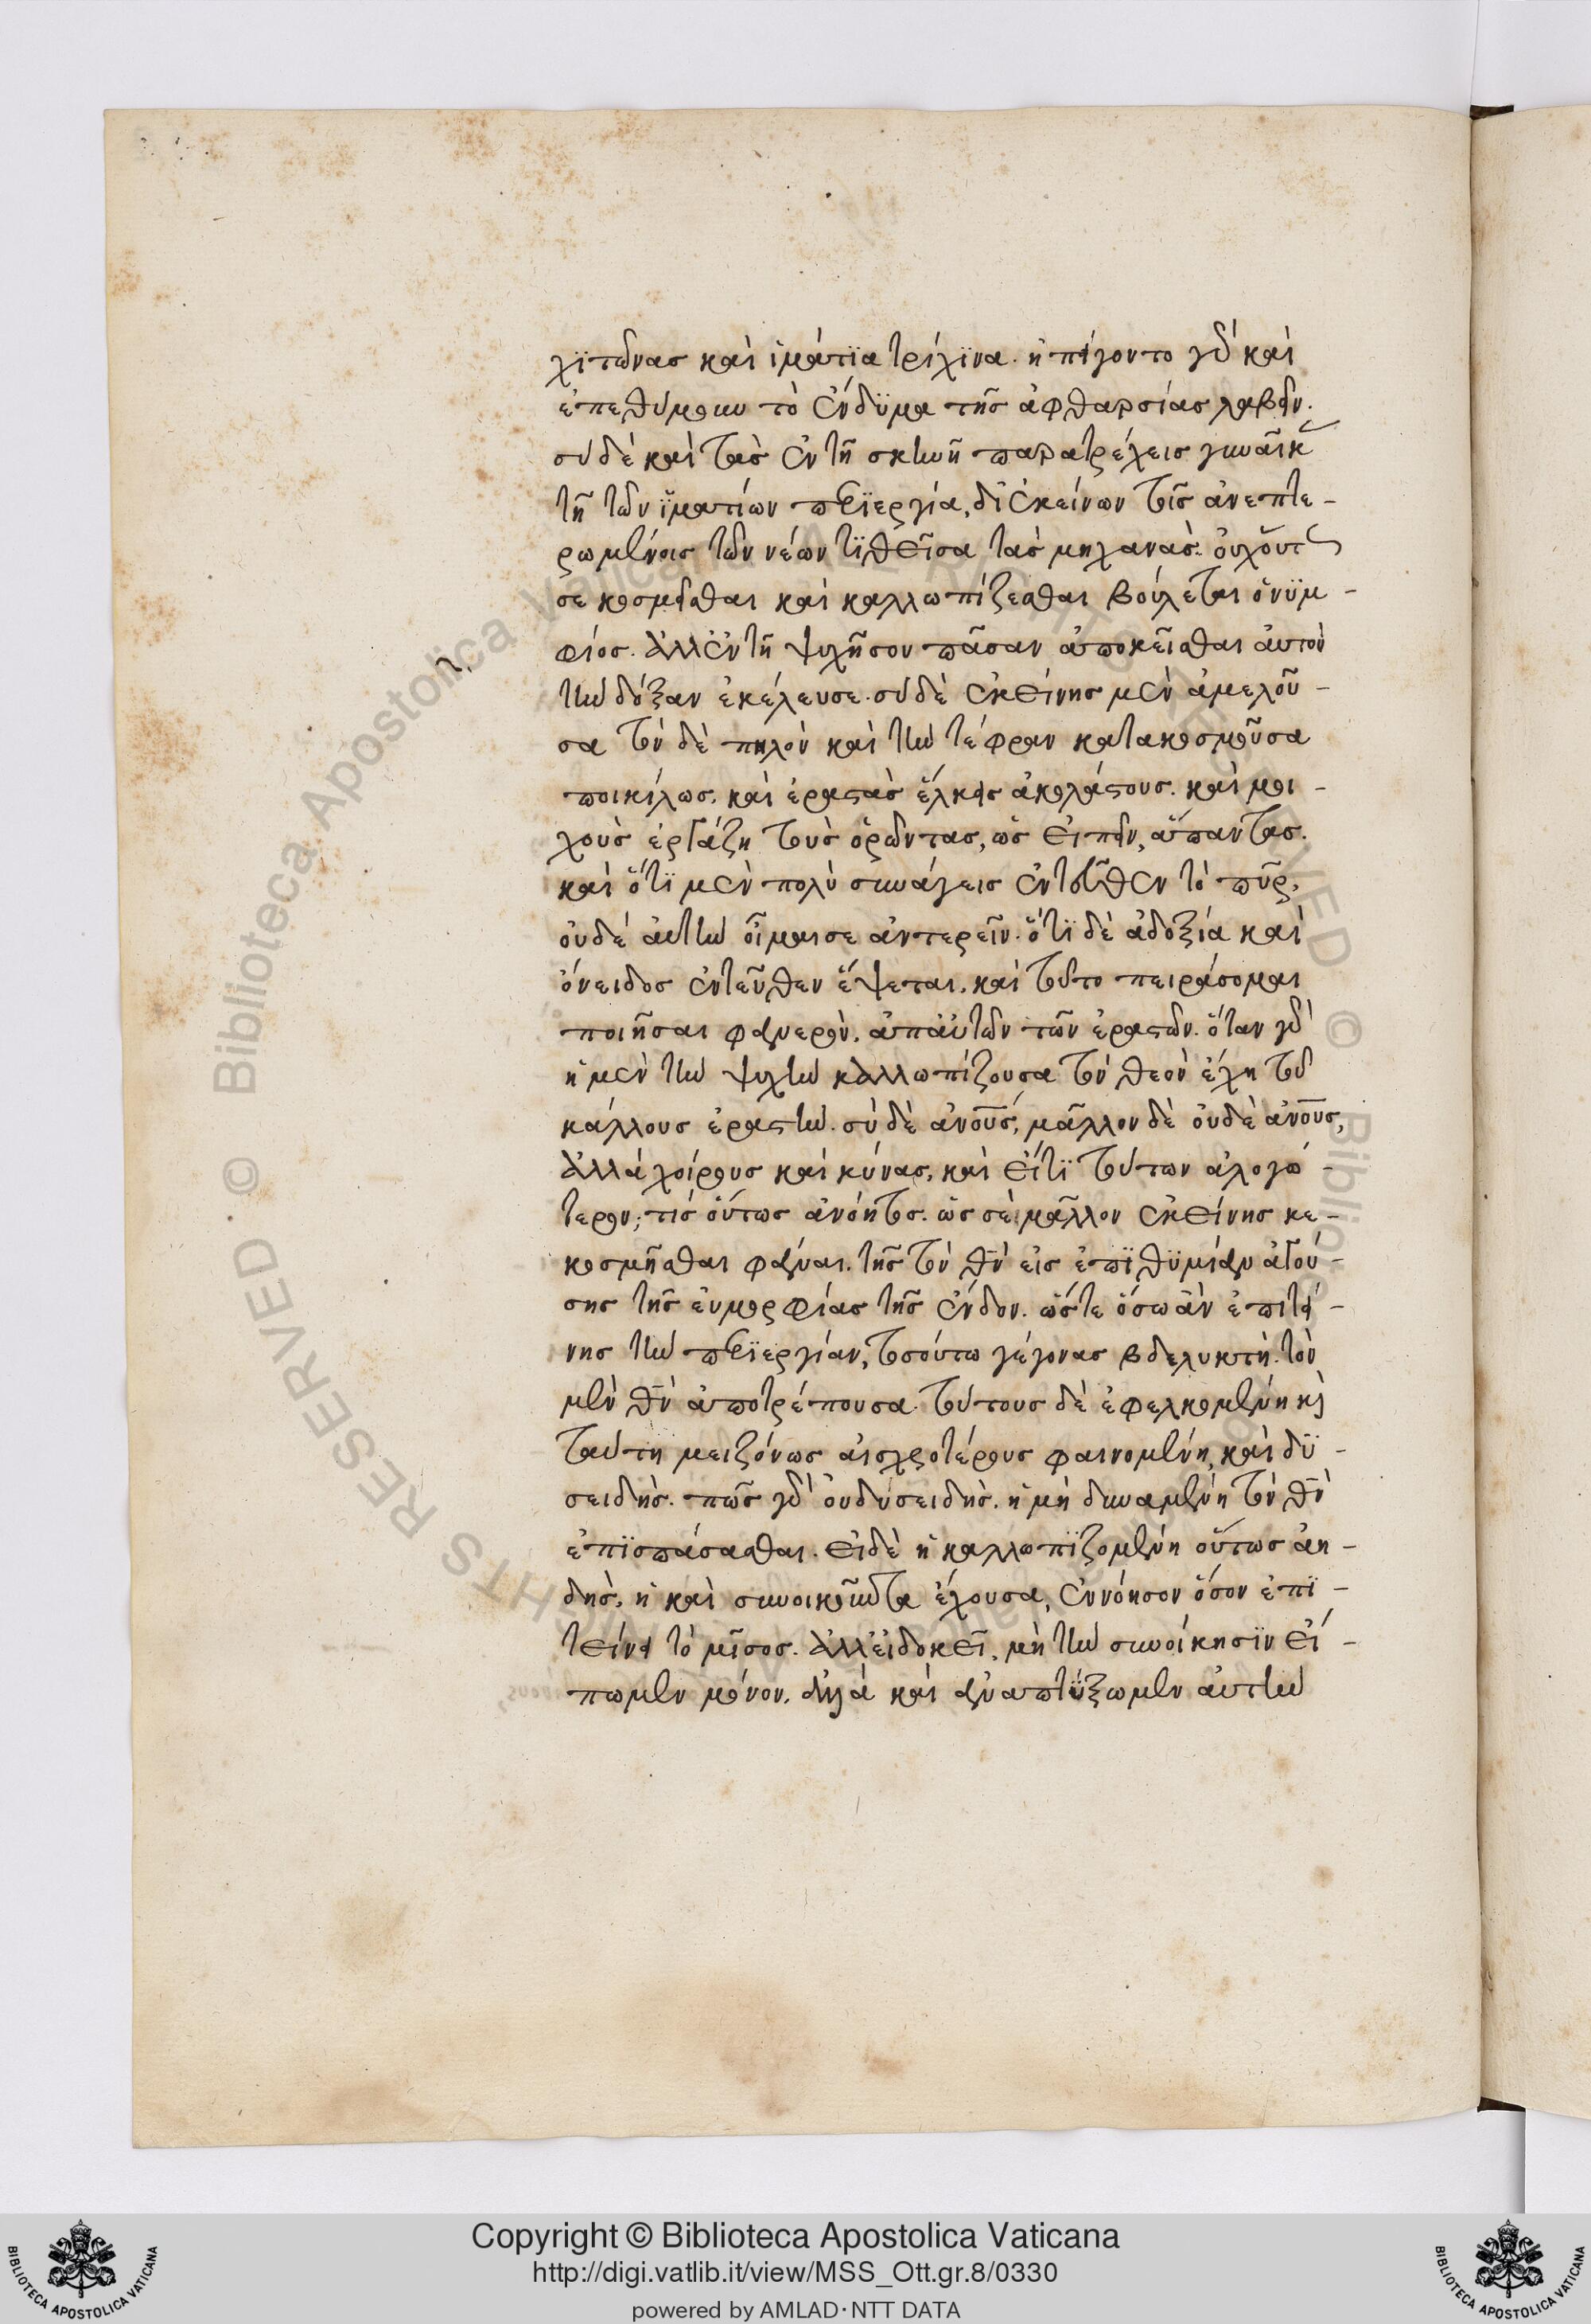 χϊτῶνας καὶ ἱμάτϊα τρίχϊνα. ἠπείγοντο γὰρ καὶ
ἐπεθύμουν τὸ ἔνδϋμα τῆς ἀφθαρσίας λαβεῖν.
σὺ δὲ καὶ τὰς ἐν τῆ σκηνῆ παρατρέχεις γυναῖκας
τῆ τῶν ἱματίων περϊεργία, δι ἐκείνων τοῖς ἀνεπτε-
ρωμένοις τῶν νέων τϊθεῖσα τὰς μηχανάς. οὐχ οὕτως
σε κοσμεῖσθαι καὶ καλλωπίζεσθαι βούλεται ὁ νϋμ-
φίος. ἀλλ ἐν τῆ ψυχῆ σου πᾶσαν ἀποκεῖσθαι αὐτοῦ
τὴν δόξαν ἐκέλευσε. σὺ δὲ ἐκείνης μὲν ἀμελοῦ-
σα τὸν δὲ πηλὸν καὶ τὴν τέφραν κατακοσμοῦσα
ποικίλως, καὶ ἐραστὰς ἕλκεις ἀκολάστους. καὶ μοι-
χοὺς ἐργάζη τοὺς ὁρῶντας, ὡς εἰπεῖν, ἅπαντας.
καὶ ὅτϊ μὲν πολὺ συνάγεις ἐντεῦθεν τὸ πῦρ,
οὐδὲ αὐτὴν οἶμαι σε ἀντερεῖν. ὅτϊ δὲ ἀδοξία καὶ
ὄνειδος ἐντεῦθεν ἕψεται, καὶ τοῦτο πειράσομαι
ποιῆσαι φανερὸν, ἀπ αὐτῶν τῶν ἐραστῶν. ὅταν γὰρ
ἡ μὲν τὴν ψυχὴν καλλωπίζουσα τὸν θεὸν ἔχη τοῦ
κάλλους ἐραστὴν. σὺ δὲ ἀνους, μᾶλλον δὲ οὐδὲ ἀνους,
ἀλλὰ χοίρους καὶ κύνας, καὶ εἴ τϊ τούτων ἀλογώ-
τερον; τίς οὕτως ἀνόητος. ὥς σε μᾶλλον ἐκείνης κε-
κοσμῆσθαι φάναι. τῆς τὸν θν εἰς ἐπϊθϋμίαν ἀγού-
σης τῆς εὐμορφίας τῆς ἔνδον. ὥστε ὅσω ἂν ἐπιτεί-
νης τὴν περϊεργίαν, τοσούτω γέγονας βδελυκτή. τὸν
μὲν θν ἀποτρέπουσα. τούτους δὲ ἐφελκομένη καὶ
ταύτη μειζόνως αἰσχροτέρους φαινομένη, καὶ δϋ-
σειδής. πῶς γὰρ οὐ δύσειδὴς. ἡ μὴ δυναμένη τὸν θν
ἐπϊσπάσασθαι. εἰ δὲ ἡ καλλωπϊζομένη οὕτως ἀη-
δὴς, ἡ καὶ συνοικοῦντα ἔχουσα, ἐννόησον ὅσον ἐπϊ-
τείνει τὸ μῖσος. ἀλλ εἰ δοκεῖ, μὴ τὴν συνοίκησϊν εἴ-
πωμεν μόνον, ἀλλὰ καὶ ἀναπτϋξωμεν αὐτὴν
Copyright © Biblioteca Apostolica Vaticana
http://digi.vatlib.it/view/MSS_Ott.gr.8/0330
powered by AMLAD·NTT DATA